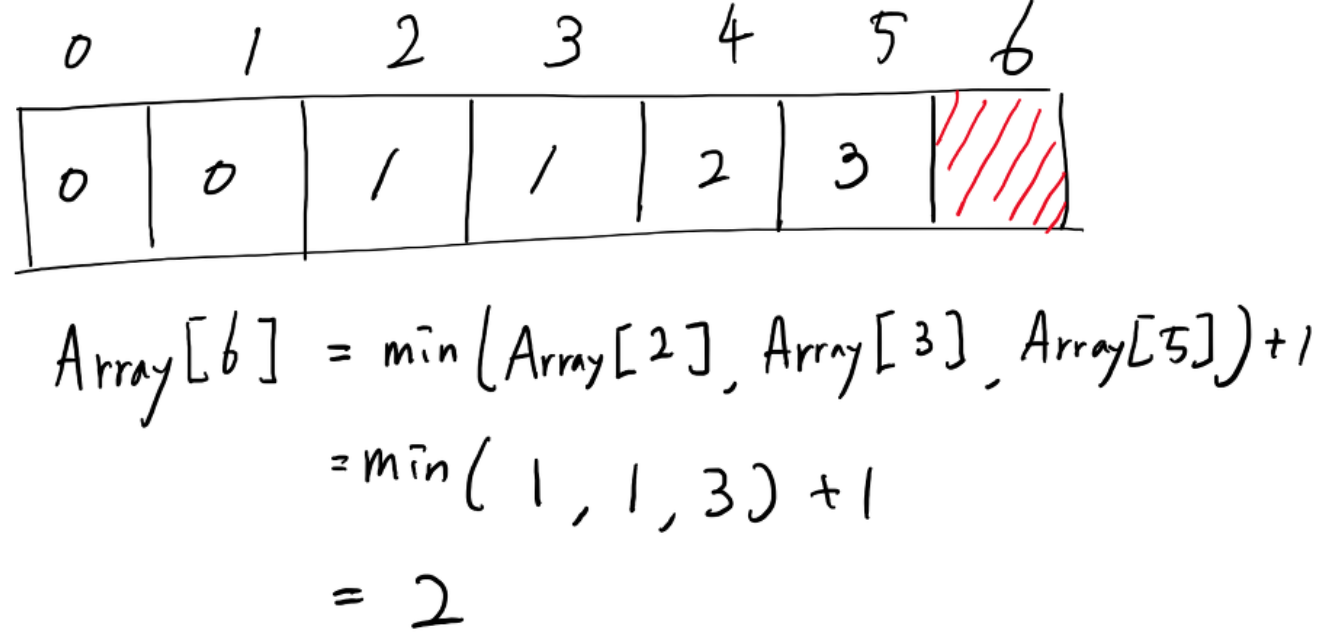 0 1 2 3 4 5 6
0 0 1 1 2 3
Array[6] = min(Array[2], Array[3], Array[5])+1
=min( 1, 1, 3) +1
= 2